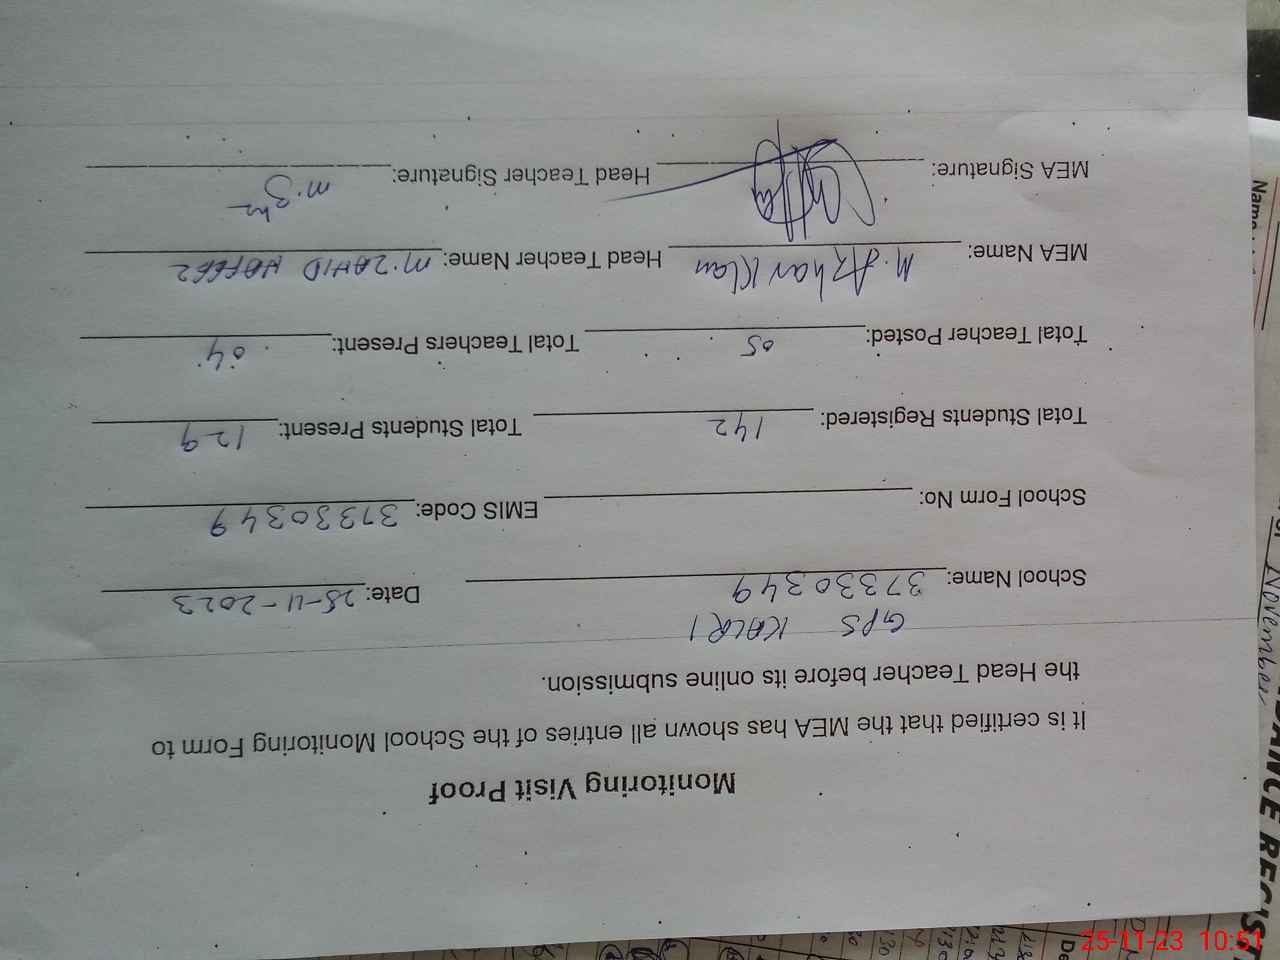 Monitoring Visit Proof
It is certified that the MEA has shown all entries of the School Monitoring Form to
the Head Teacher before its online submission.
GPS KALRI
School Name: 37330349 Date: 25-11-2023
School Form No: EMIS Code: 37330349
Total Students Registered: 142 Total Students Present: 129
Total Teacher Posted: 05 Total Teachers Present: 04
MEA Name: M. Azhar Khan Head Teacher Name: M. ZAHID HAFEEZ
MEA Signature: Head Teacher Signature:
November
25-11-23 10:51